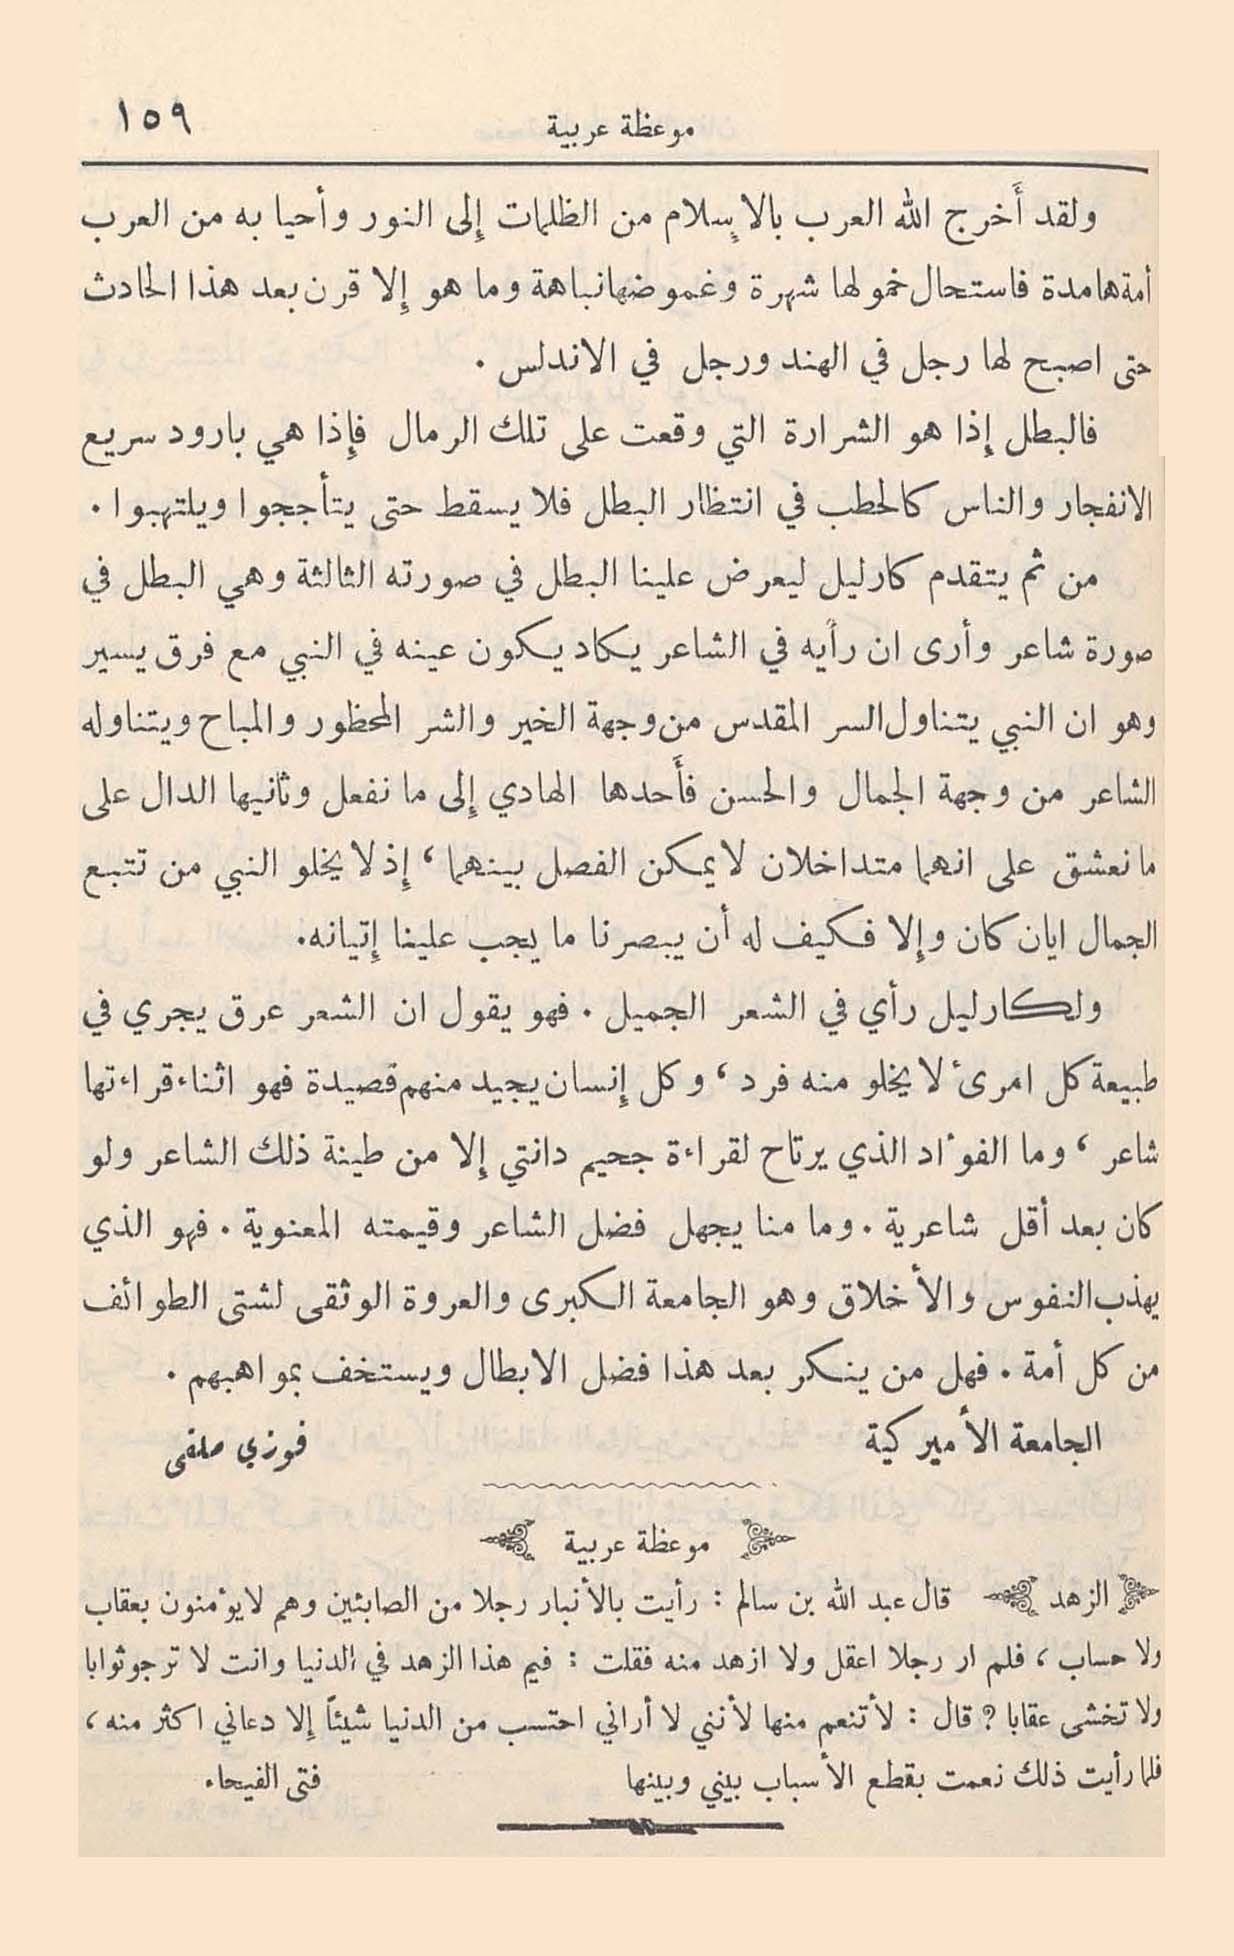 موعظة عربية ١٥٩
ولقد أَخرج الله العرب بالاٍسلام من الظلمات إِلى النور وأحيا به من العرب
أمة هامدة فاستحال خمولها شهرة وغموضها نباهة وما هو إِلا قرن بعد هذا الحادث
حتى اصبح لها رجل في الهند ورجل في الاندلس .
فالبطل إِذا هو الشرارة التي وقعت على تلك الرمال فإِذا هي بارود سريع
الانفجار والناس كالحطب في انتظار البطل فلا يسقط حتى يتأججوا ويلتهبوا .
من ثم يتقدم كارليل ليعرض علينا البطل في صورته الثالثة وهي البطل في
صورة شاعر وأرى ان رأيه في الشاعر يكاد يكون عينه في النبي مع فرق يسير
وهو ان النبي يتناول السر المقدس من وجهة الخير والشر المحظور والمباح ويتناوله
الشاعر من وجهة الجمال والحسن فأَحدها الهادي إِلى ما نفعل وثانيها الدال على
ما نعشق على انهما متداخلان لا يمكن الفصل بينهما ، إِذ لا يخلو النبي من تتبع
الجمال ايان كان وإِلا فكيف له أن يبصرنا ما يجب علينا إِتيانه.
ولكارليل رأي في الشعر الجميل . فهو يقول ان الشعر عرق يجري في
طبيعة كل امرئ لا يخلو منه فرد ، وكل إِنسان يجيد منهم قصيدة فهو اثناء قراءتها
شاعر ، وما الفؤاد الذي يرتاح لقراءة جحيم دانتي إِلا من طينة ذلك الشاعر ولو
كان بعد أقل شاعرية . وما منا يجهل فضل الشاعر وقيمته المعنوية . فهو الذي
يهذب النفوس والأخلاق وهو الجامعة الكبرى والعروة الوثقى لشتى الطوائف
من كل أمة . فهل من ينكر بعد هذا فضل الابطال ويستخف بمواهبهم .
الجامعة الأميركية فوزي
موعظة عربية
الزهد قال عبد الله بن سالم : رأيت بالأنبار رجلا من الصابئين وهم لا يؤمنون بعقاب
ولا حساب ، فلم ار رجلا اعقل ولا ازهد منه فقلت : فيم هذا الزهد في الدنيا وانت لا ترجو ثوابا
ولا تخشى عقابا ؟ قال : لأتنعم منها لأنني لا أراني احتسب من الدنيا شيئاً إِلا دعاني اكثر منه ،
فلما رأيت ذلك نعمت بقطع الأسباب بيني وبينها فتى الفيحاء